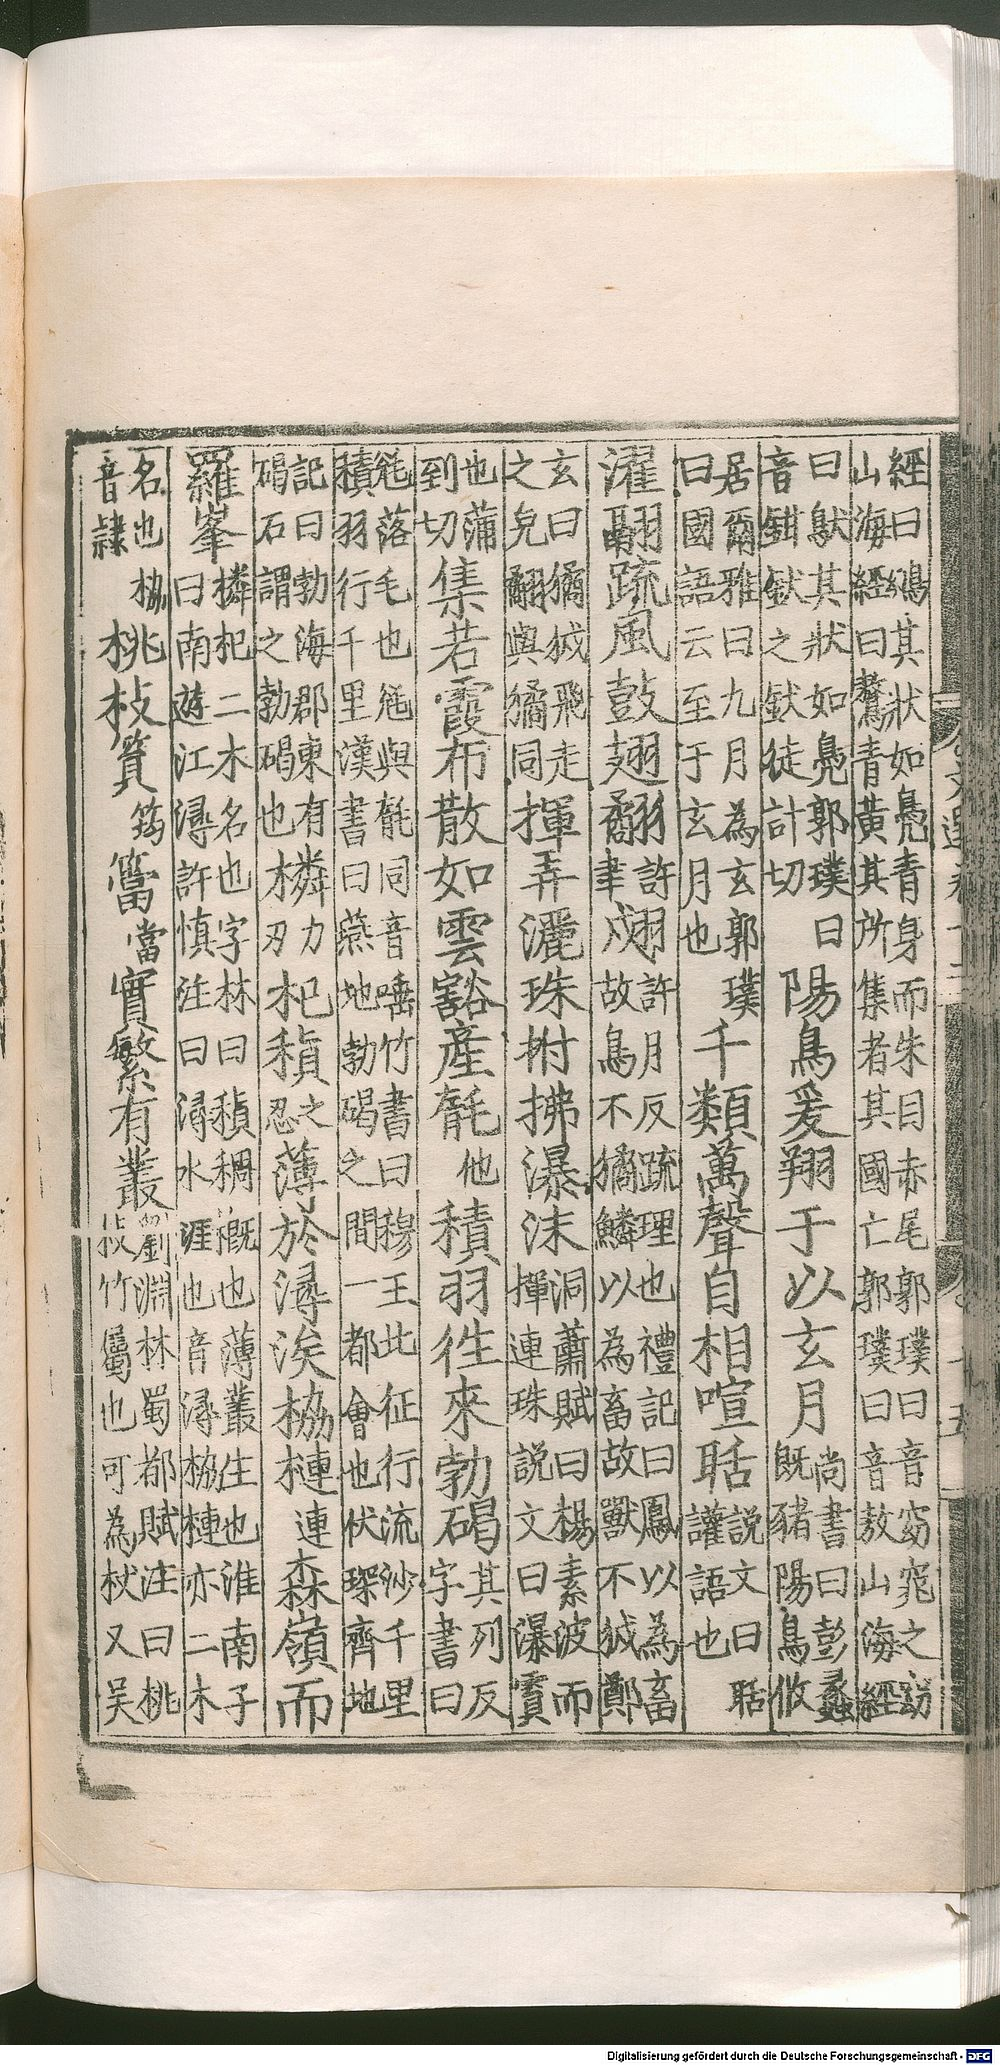 經曰鴢其狀如鳧青身而朱目赤尾郭璞曰音窈窕之窈
山海經曰鶿青黃其所集者其國亡郭璞曰音敖山海經
曰䳃其狀如鳧郭璞曰
音鉗釱之釱徒計切
陽鳥爰翔于以玄月
尚書曰彭蠡
既豬陽鳥攸
居爾雅曰九月為玄郭璞
曰國語云至于玄月也
千類萬聲自相喧聒
說文曰聒
讙語也
濯翮疏風鼓翅翻翙
許翙許月反疏理也禮記曰鳳以為畜
聿戍故鳥不獝鱗以為畜故獸不狘鄭
玄曰獝狘飛走
之皃翻與獝同
揮弄灑珠拊拂瀑沫
洞蕭賦曰楊素波而
揮連珠說文曰瀑霣
也蒲
到切
集若霞布散如雲豁產毻他積羽往來勃碣
其列反
字書曰
毻落毛也毻與毻同音唾竹書曰穆王北征行流沙千里
積羽行千里漢書曰燕地勃碣之間一都會也伏琛齊地
記曰勃海郡東有
碣石謂之勃碣也
橉力刃杞稹之忍薄於潯涘栛槤連森嶺而
羅峯
橉杞二木名也字林曰稹稠概也薄叢生也淮南子
曰南遊江潯許慎注曰潯水涯也音潯栛槤亦二木
名也栛
音隸
桃枝篔筠簹當實繁有叢
劉淵林蜀都賦注曰桃
枝竹屬也可為杖又吳
Digitalisierung gefördert durch die Deutsche Forschungsgemeinschaft - DFG